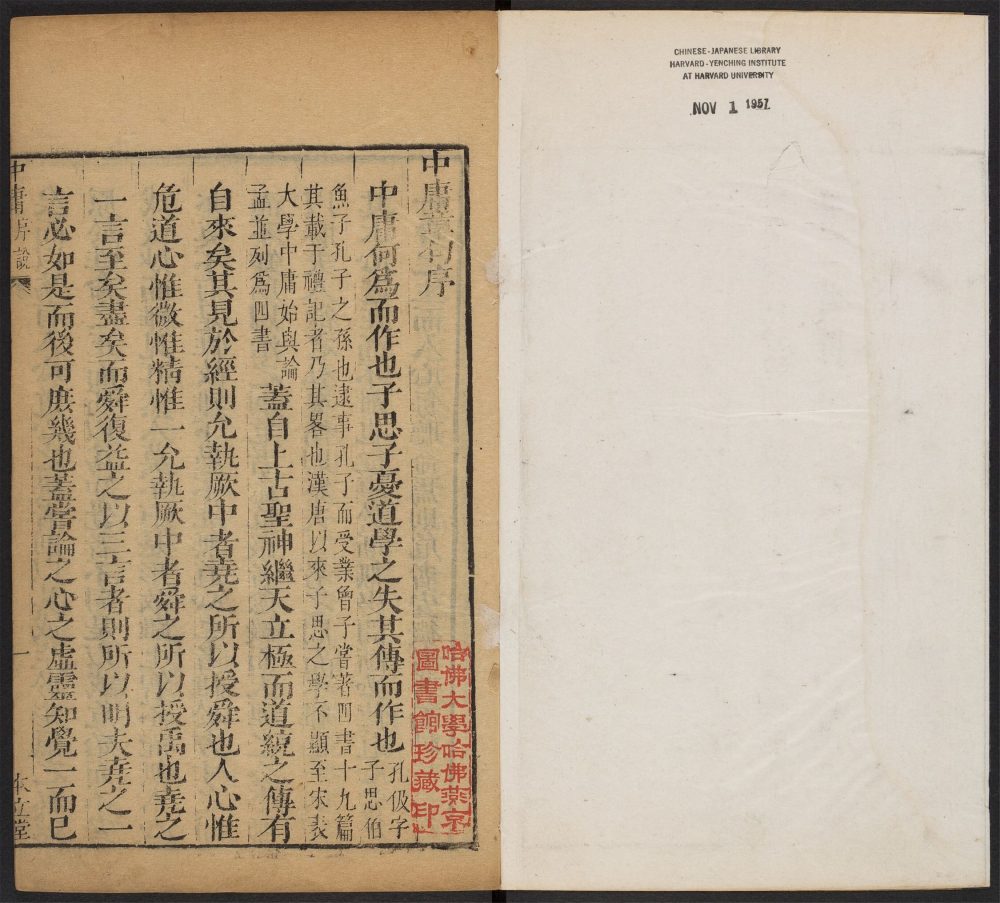 CHINESE-JAPANESE LIBRARY
HARVARD-YENCHING INSTITUTE
AT HARVARD UNIVERSITY
NOV 1 1957
中庸章句序
哈佛大學哈佛燕京
圖書館珍藏印
中庸何爲而作也子思子憂道學之失其傳而作也孔伋字
子思伯
魚子孔子之孫也逮事孔子而受業曾子嘗著書十九篇
其載于禮記者乃其畧也漢唐以來子思之學不顯至宋表
大學中庸始與論
孟並列爲四書
蓋自上古聖神繼天立極而道統之傳有
自來矣其見於經則允執厥中者堯之所以授舜也人心惟
危道心惟微惟精惟一允執厥中者舜之所以授禹也堯之
一言至矣盡矣而舜復益之以三言者則所以明夫堯之一
言必如是而後可庶幾也蓋嘗論之心之虛靈知覺一而已
中庸序說
一
立堂